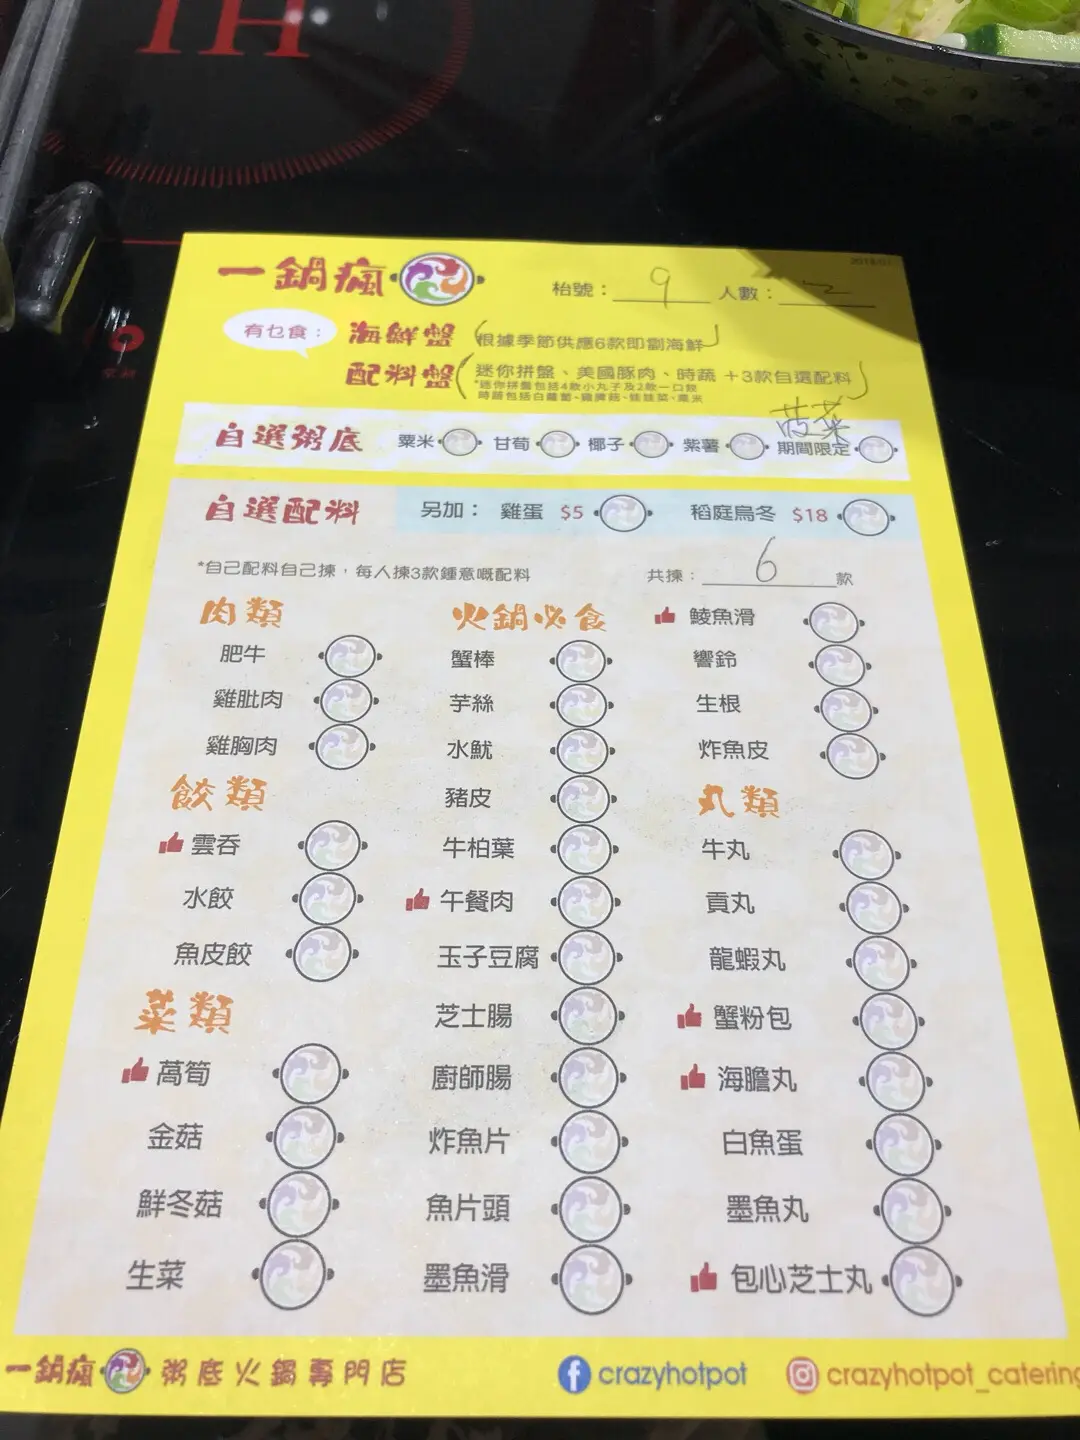 一鍋瘋
枱號： 9 人數： 2
有乜食： 海鮮盤 (根據季節供應6款即劏海鮮)
配料盤 (迷你拼盤、美國豚肉、時蔬 +3款自選配料)
*迷你拼盤包括4款小丸子及2款一口餃
時蔬包括白蘿蔔、雞脾菇、娃娃菜、粟米
菠菜
自選粥底 粟米 甘荀 椰子 紫薯 期間限定
自選配料 另加： 雞蛋 $5 稻庭烏冬 $18
*自己配料自己揀，每人揀3款鍾意嘅配料 共揀： 6 款
肉類
肥牛
雞肶肉
雞胸肉
餃類
雲吞
水餃
魚皮餃
菜類
萵筍
金菇
鮮冬菇
生菜
火鍋必食
蟹棒
芋絲
水魷
豬皮
牛柏葉
午餐肉
玉子豆腐
芝士腸
廚師腸
炸魚片
魚片頭
墨魚滑
鯪魚滑
響鈴
生根
炸魚皮
丸類
牛丸
貢丸
龍蝦丸
蟹粉包
海膽丸
白魚蛋
墨魚丸
包心芝士丸
一鍋瘋 粥底火鍋專門店 crazyhotpot crazyhotpot_catering